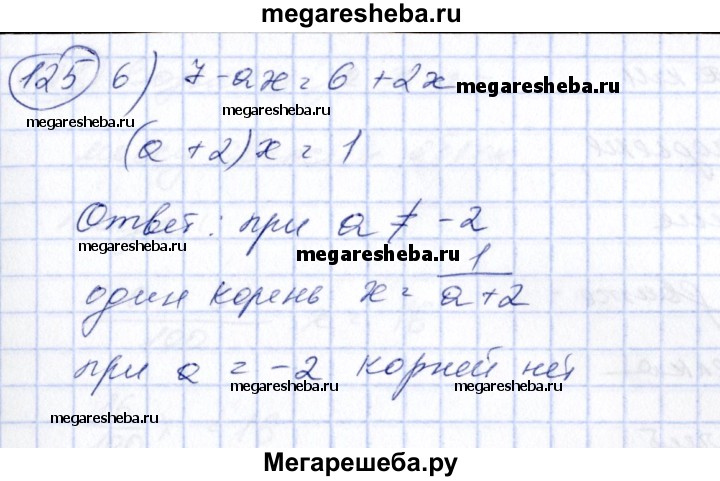 megaresheba.ru
125 б) 7 - ax = 6 + 2x megaresheba.ru
megaresheba.ru megaresheba.ru
(a + 2)x = 1
Ответ: при a ≠ -2
megaresheba.ru megaresheba.ru
один корень x = 1/(a + 2)
при a = -2 корней нет
megaresheba.ru megaresheba.ru
megaresheba.ru
Мегарешеба.ру